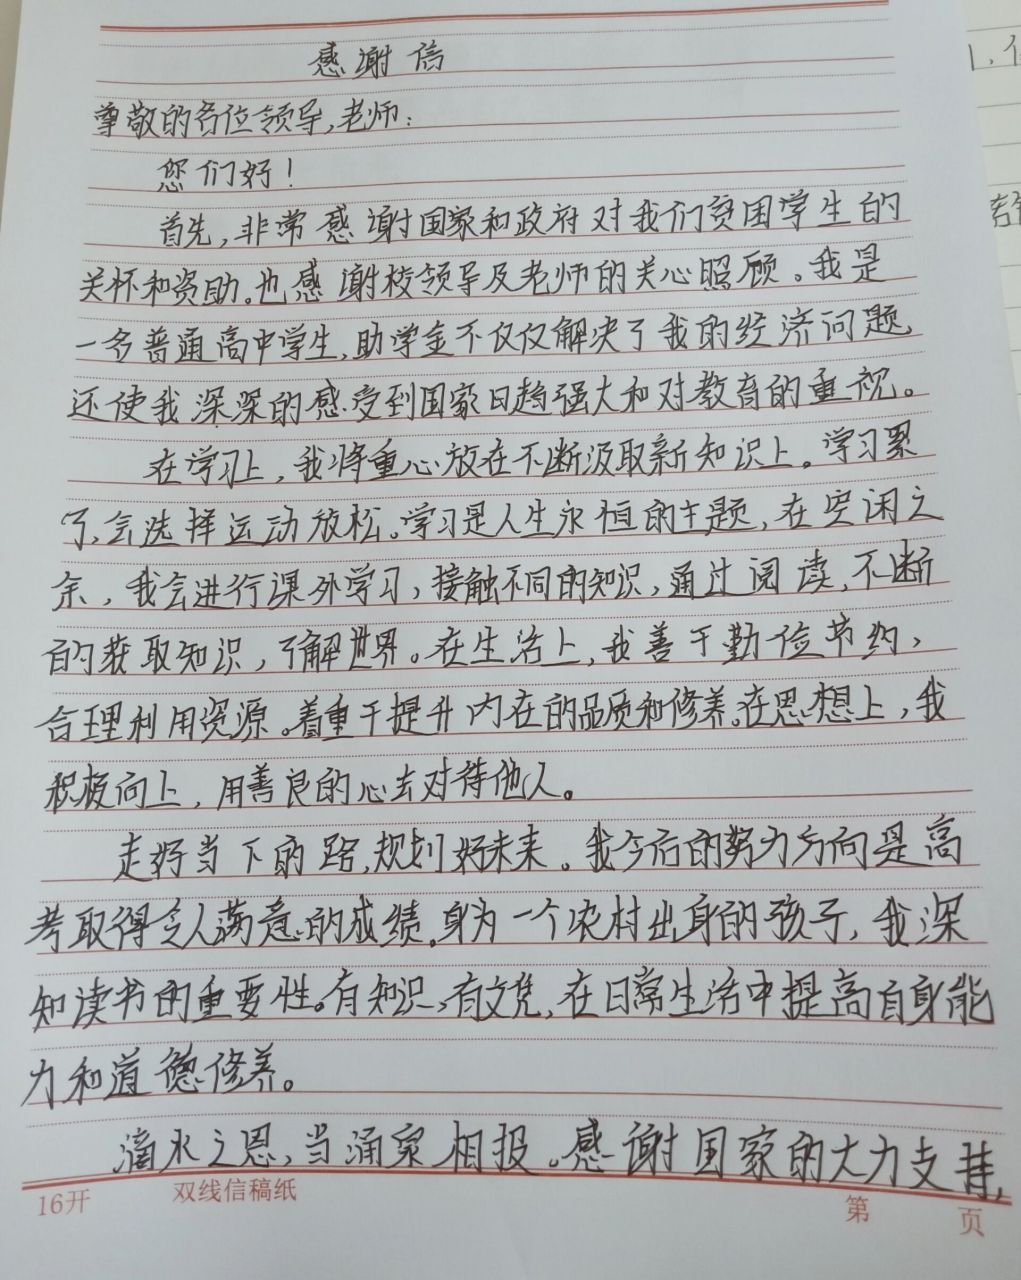 感谢信
尊敬的各位领导,老师:
您们好!
首先,非常感谢国家和政府对我们贫困学生的
关怀和资助。也感谢校领导及老师的关心照顾。我是
一名普通高中学生,助学金不仅仅解决了我的经济问题
还使我深深的感受到国家日趋强大和对教育的重视。
在学习上,我将重心放在不断汲取新知识上。学习累
了,会选择运动放松。学习是人生永恒的主题,在空闲之
余,我会进行课外学习,接触不同的知识,通过阅读,不断
的获取知识,了解世界。在生活上,我善于勤俭节约,
合理利用资源。着重于提升内在的品质和修养。在思想上,我
积极向上,用善良的心去对待他人。
走好当下的路,规划好未来。我今后的努力方向是高
考取得令人满意的成绩。身为一个农村出身的孩子,我深
知读书的重要性。有知识,有文凭,在日常生活中提高自身能
力和道德修养。
滴水之恩,当涌泉相报。感谢国家的大力支持,
16开 双线信稿纸 第 页
1,